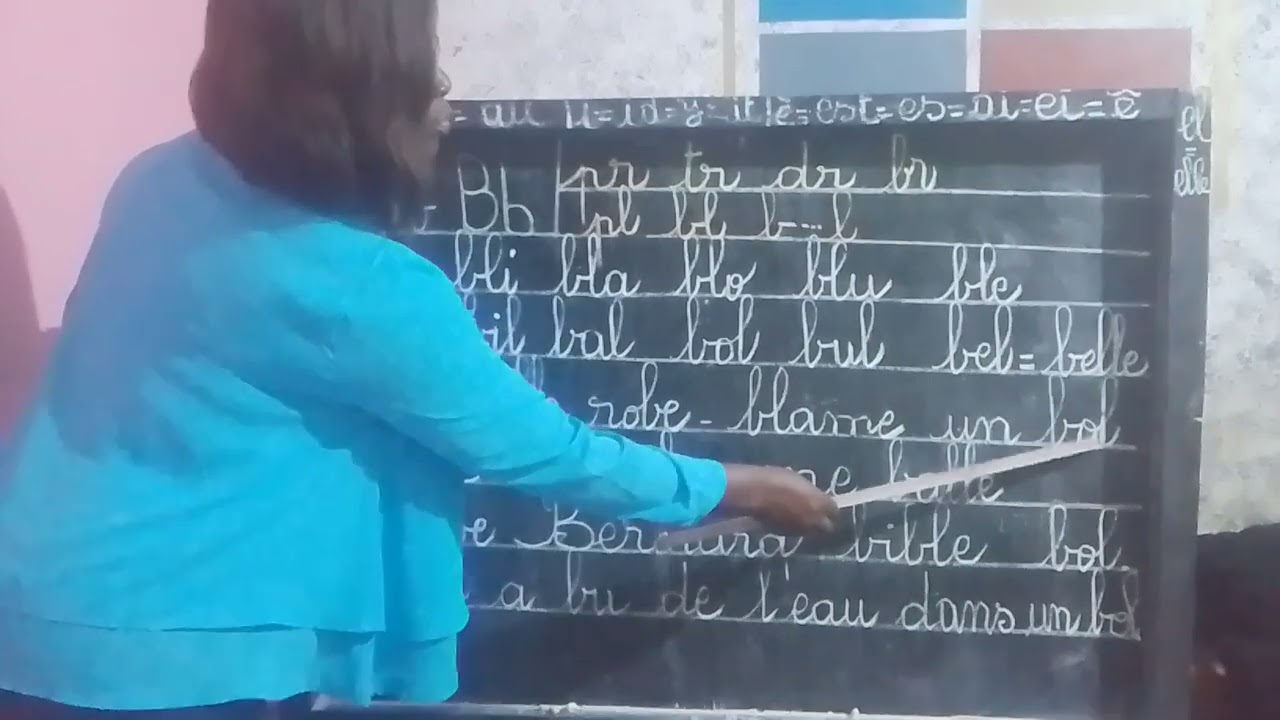 = au u=id=y=it è=est=es=ai=ei=ê
el
elle
Bb pr tr dr br
pl bl b---l
bli bla blo blu ble
bil bal bol bul bel=belle
robe - blame un bol
balle
bible bol.
a bu de l'eau dans un bol